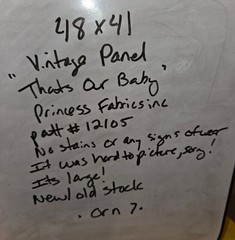 48 x 41
"Vintage Panel
Thats Our Baby"
Princess Fabrics inc
patt # 12105
No stains or any signs of wear
It was hard to picture, sorry!
Its large!
New old stock
. orn 7.